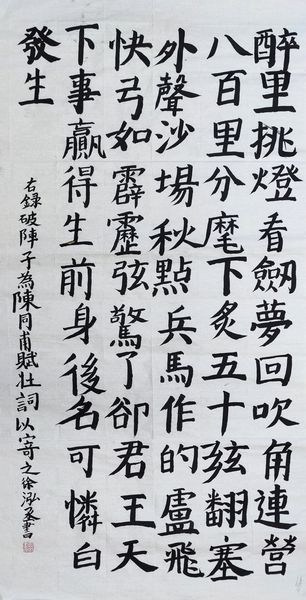 醉里挑燈看劔夢回吹角連營
八百里分麾下炙五十弦翻塞
外聲沙場秋點兵馬作的盧飛
快弓如霹靂弦驚了卻君王天
下事贏得生前身後名可憐白
發生
右錄破陣子為陳同甫賦壯詞以寄之徐泓書